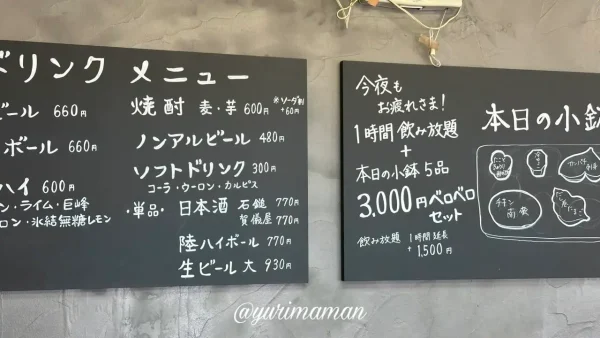 ドリンク メニュー
ビール 660円
ボール 660円
ハイ 600円
ン・ライム・巨峰
ロン・氷結無糖レモン
焼酎 麦・芋 600円 ※ソーダ割 +60円
ノンアルビール 480円
ソフトドリンク 300円
コーラ・ウーロン・カルピス
・単品・ 日本酒 石鎚 770円
賀儀屋 770円
陸ハイボール 770円
生ビール 大 930円
今夜も
お疲れさま!
1時間飲み放題
+
本日の小鉢5品
3,000円ベロベロ
セット
飲み放題 1時間延長
+1,500円
本日の小鉢
チキン
南蛮
@yurimaman